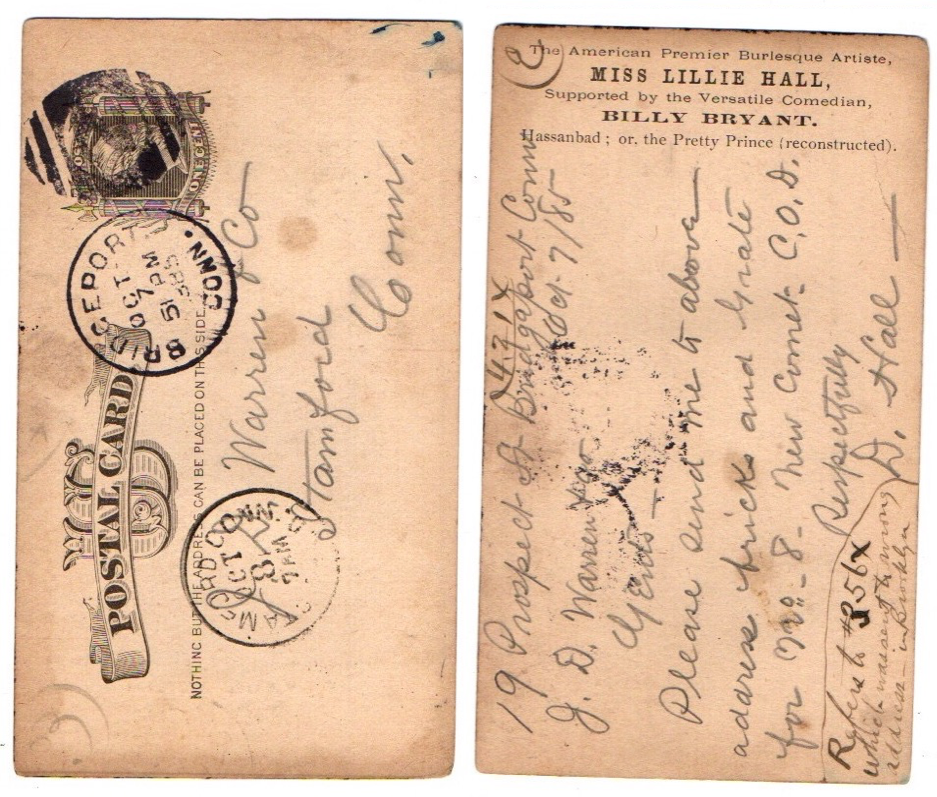 ONE CENT
BRIDGEPORT CONN.
OCT
7
5 PM
1885
U S
POSTAL CARD
NOTHING BUT THE ADDRESS CAN BE PLACED ON THIS SIDE.
Warren & Co
Stamford
Conn.
OCT
8
7 AM
The American Premier Burlesque Artiste,
MISS LILLIE HALL,
Supported by the Versatile Comedian,
BILLY BRYANT.
Hassanbad; or, the Pretty Prince (reconstructed).
19 Prospect St Bridgeport Conn
Oct 7/85
J. D. Warren & Co
Gents
Please send me to above
address bricks and Grate
for No. 8 New Comet C.O.D.
Respectfully
D. Hall
Refers to
which was sent to wrong
address in Brooklyn